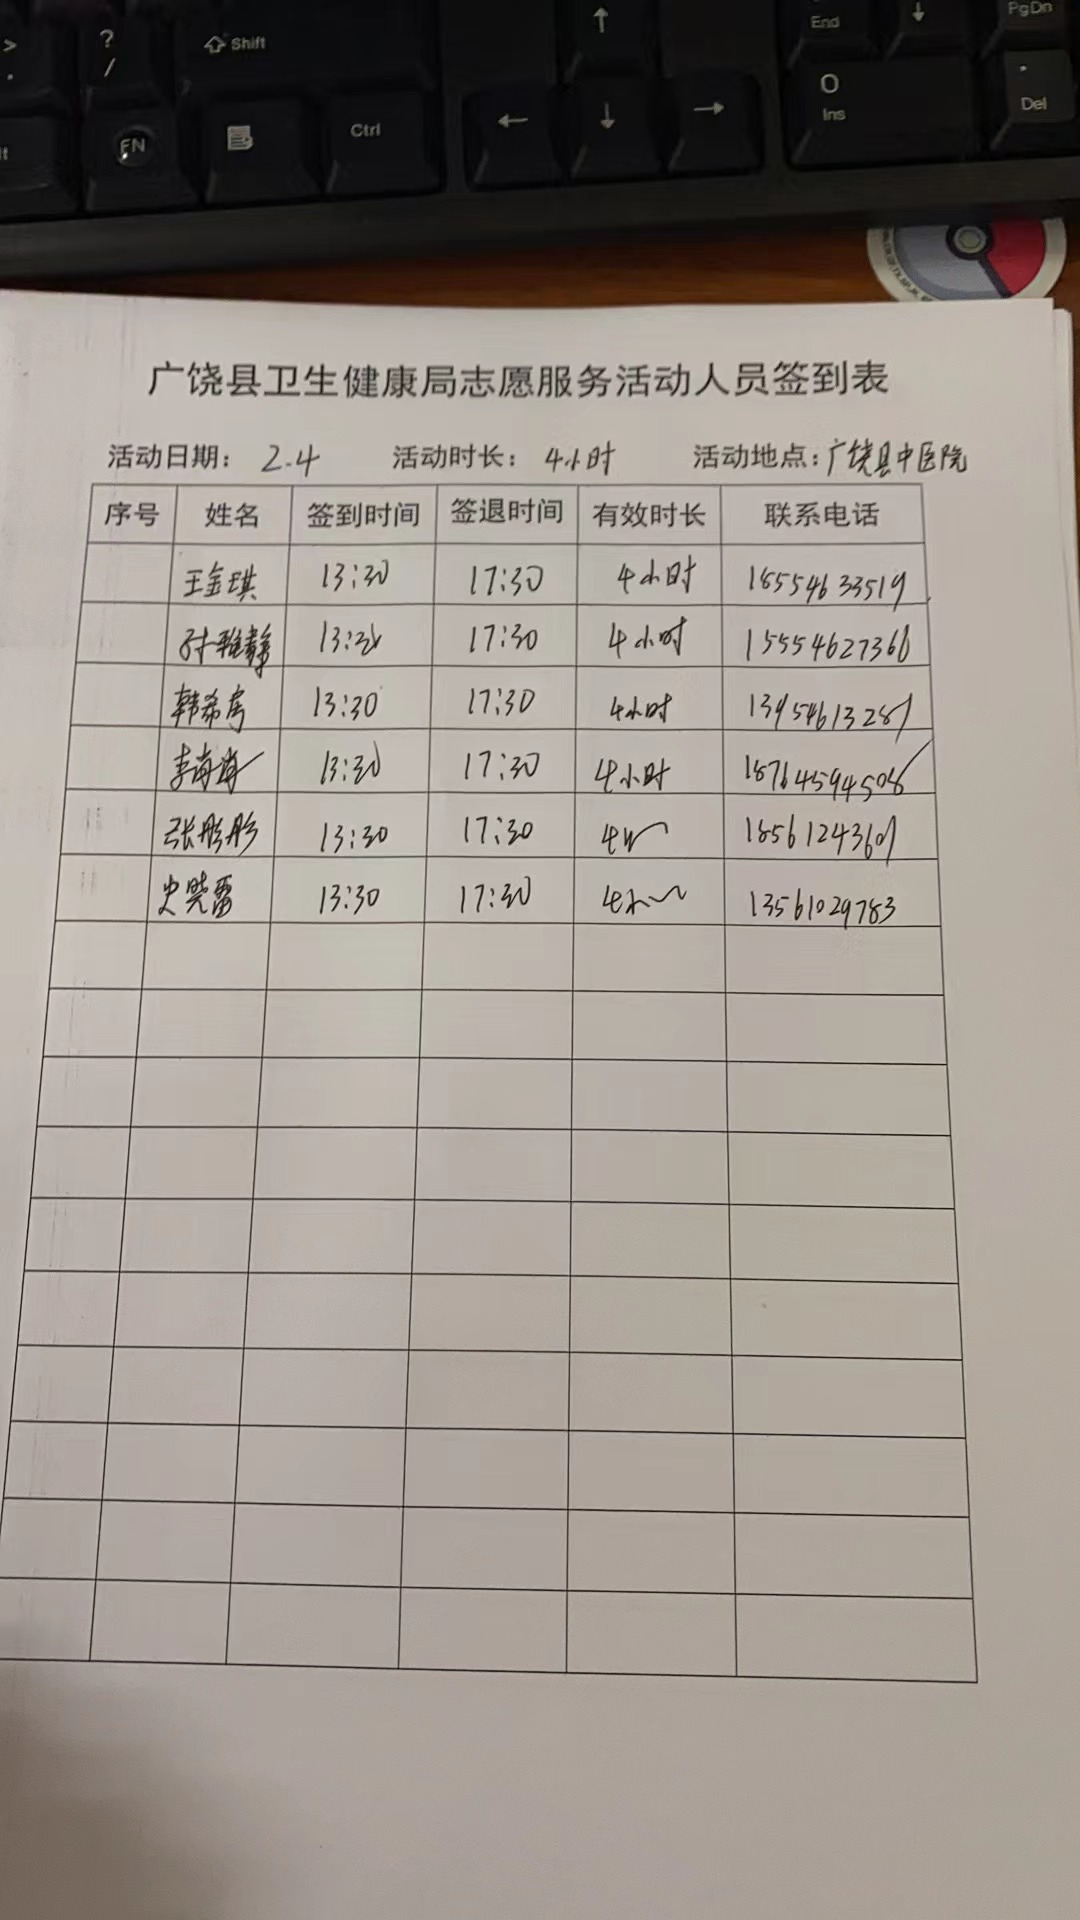 > ? Shift ↑ End ↓ PgDn
. / 0 .
FN Ctrl ← ↓ → Ins Del
广饶县卫生健康局志愿服务活动人员签到表
活动日期: 2.4 活动时长: 4小时 活动地点:广饶县中医院
序号 姓名 签到时间 签退时间 有效时长 联系电话
王金琪 13:30 17:30 4小时 18554633519
孙雅静 13:30 17:30 4小时 15554627366
韩希房 13:30 17:30 4小时 13954613287
李海涛 13:30 17:30 4小时 18764594508
张彤彤 13:30 17:30 4 18561243607
史晓雷 13:30 17:30 4小 13561029783